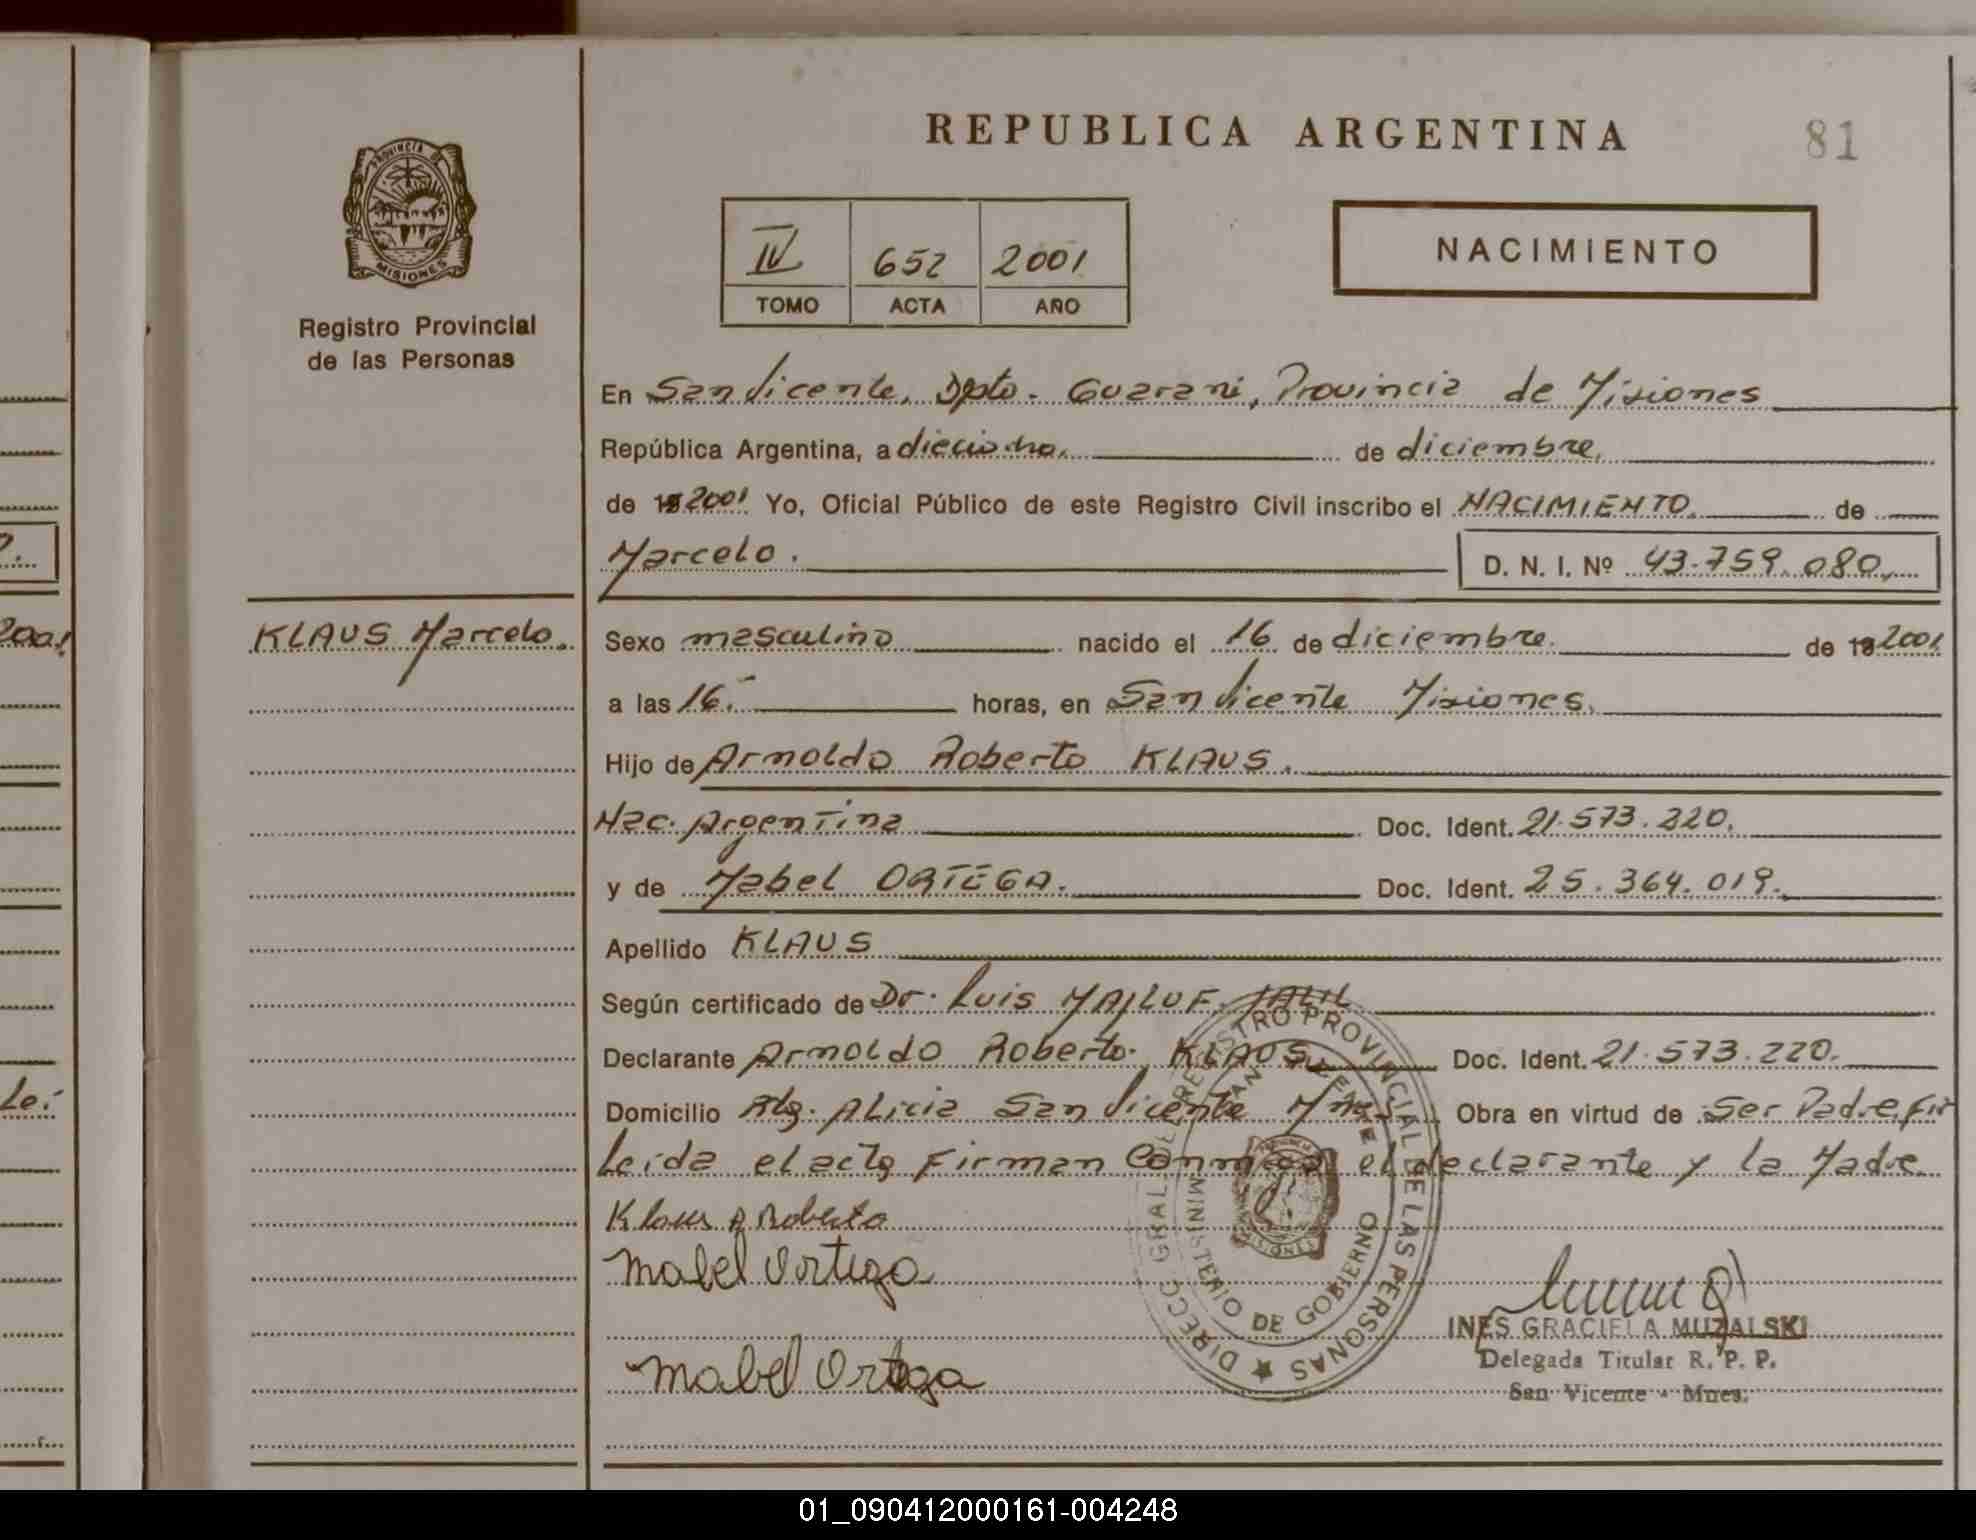 REPUBLICA ARGENTINA
81
PROVINCIA DE
MISIONES
Registro Provincial
de las Personas
IV 652 2001
TOMO ACTA AÑO
NACIMIENTO
En San Vicente, Dpto. Guarani, Provincia de Misiones
República Argentina, a dieciocho. de diciembre.
de 19 2001 Yo, Oficial Público de este Registro Civil inscribo el NACIMIENTO. de
Marcelo. D. N. I. Nº 43.759.080.
KLAUS Marcelo.
Sexo masculino nacido el 16 de diciembre. de 19 2001.
a las 16. horas, en San Vicente Misiones.
Hijo de Arnoldo Roberto KLAUS.
Nac. Argentina Doc. Ident. 21.573.220.
y de Mabel ORTEGA. Doc. Ident. 25.364.019.
Apellido KLAUS
Según certificado de Dr. Luis MAJLUF JALIL
Declarante Arnoldo Roberto KLAUS Doc. Ident. 21.573.220.
Domicilio Alicia San Vicente Mnes. Obra en virtud de Ser Padre.
Leída el acta Firman Conmigo el declarante y la Madre
Klaus A Roberto
Mabel Ortega
Mabel Ortega
DIRECC. GRAL. DEL REGISTRO PROVINCIAL DE LAS PERSONAS
SAN VICENTE
MINISTERIO DE GOBIERNO
MISIONES
INES GRACIELA MUZALSKI
Delegada Titular R. P. P.
San Vicente - Mnes.
2001.
Lei
01_090412000161-004248